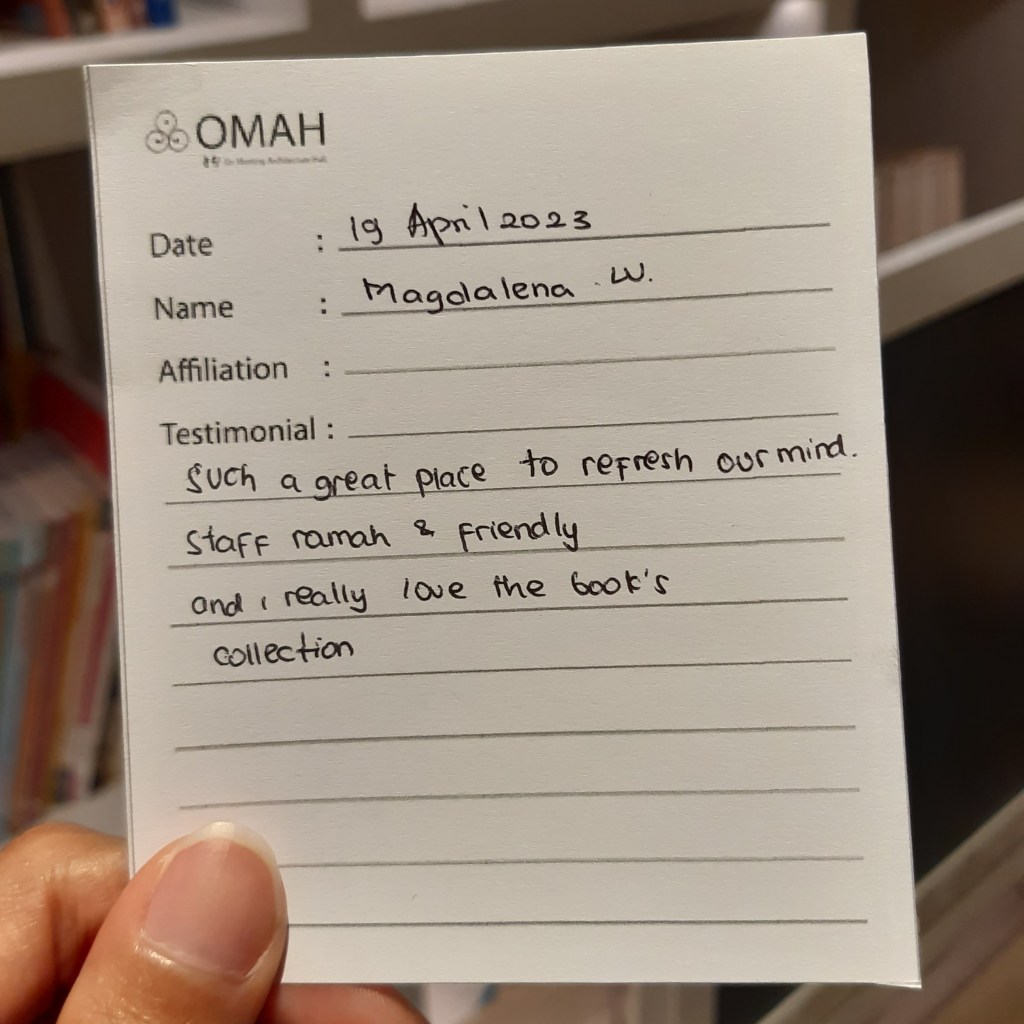 OMAH
Date : 19 April 2023
Name : Magdalena . W.
Affiliation :
Testimonial :
Such a great place to refresh our mind.
Staff ramah & friendly
and i really love the book's
collection